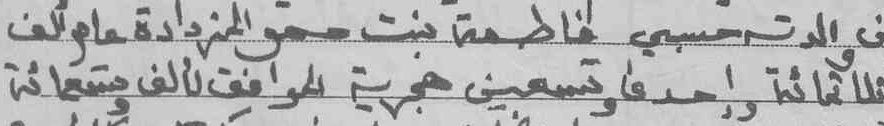 والدته حسبي فاطمة بنت حمو المزدادة عام الف
ثلاثمائة وإحدى وتسعين هجرية الموافق لألف وتسعمائة